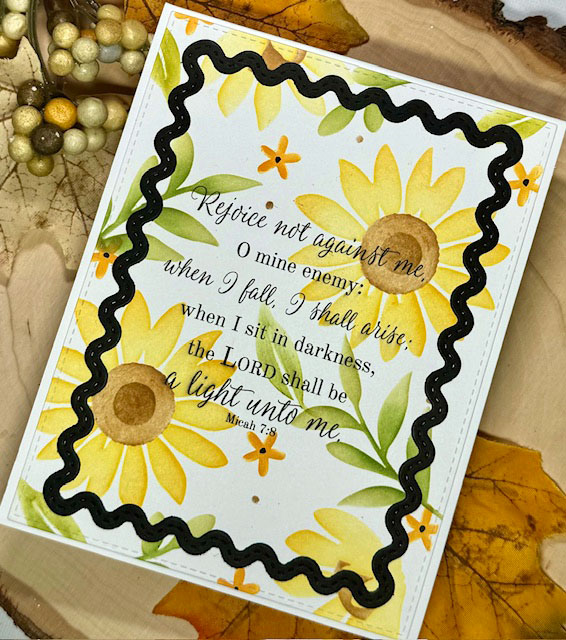 Rejoice not against me,
O mine enemy:
when I fall, I shall arise;
when I sit in darkness,
the LORD shall be
a light unto me.
Micah 7:8